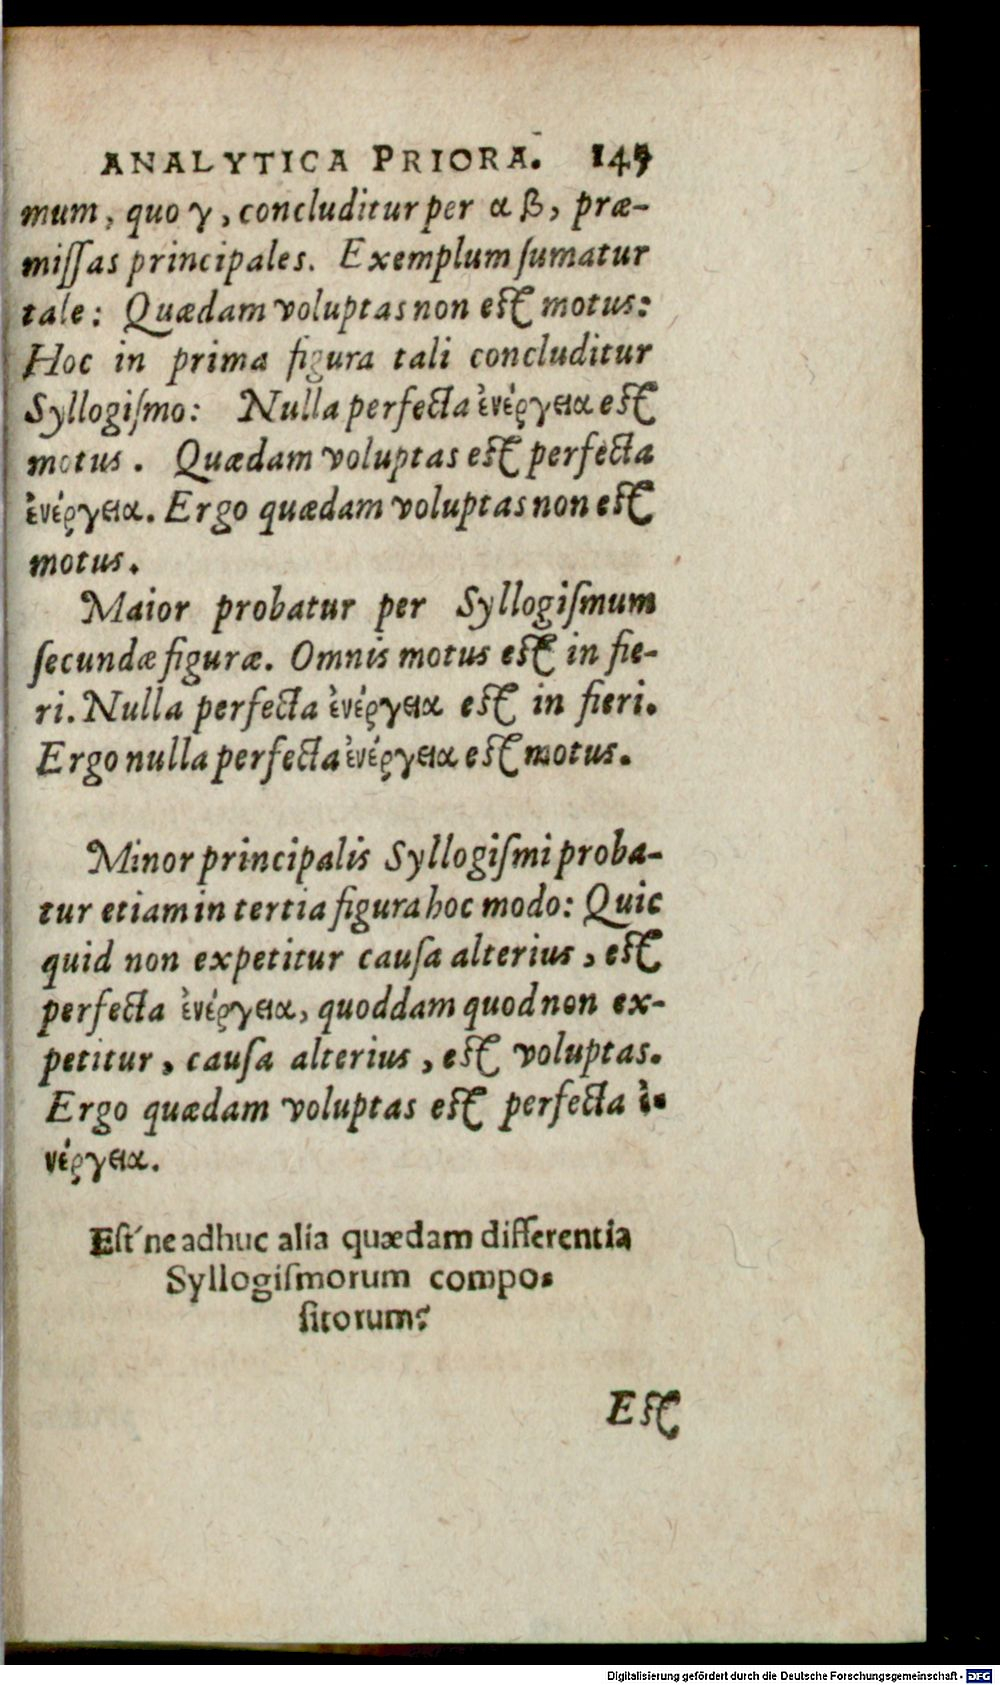 ANALYTICA PRIORA. 145
mum, quo γ, concluditur per α β, præ-
miſſas principales. Exemplum ſumatur
tale: Quædam voluptas non eſt motus:
Hoc in prima figura tali concluditur
Syllogiſmo: Nulla perfecta ἐνέργεια eſt
motus. Quædam voluptas eſt perfecta
ἐνέργεια. Ergo quædam voluptas non eſt
motus.
Maior probatur per Syllogiſmum
ſecundæ figuræ. Omnis motus eſt in fie-
ri. Nulla perfecta ἐνέργεια eſt in fieri.
Ergo nulla perfecta ἐνέργεια eſt motus.
Minor principalis Syllogiſmi proba-
tur etiam in tertia figura hoc modo: Quic
quid non expetitur cauſa alterius, eſt
perfecta ἐνέργεια, quoddam quod non ex-
petitur, cauſa alterius, eſt voluptas.
Ergo quædam voluptas eſt perfecta ἐ-
νέργεια.
Eſt'ne adhuc alia quædam differentia
Syllogiſmorum compo-
ſitorum?
Eſt
Digitalisierung gefördert durch die Deutsche Forschungsgemeinschaft - DFG